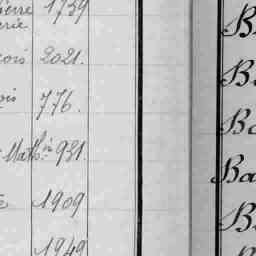 ierre 1739
erie
cois 2021.
ois 776.
Math.in 931.
1909
1949
B
B
Ba
Ba
B